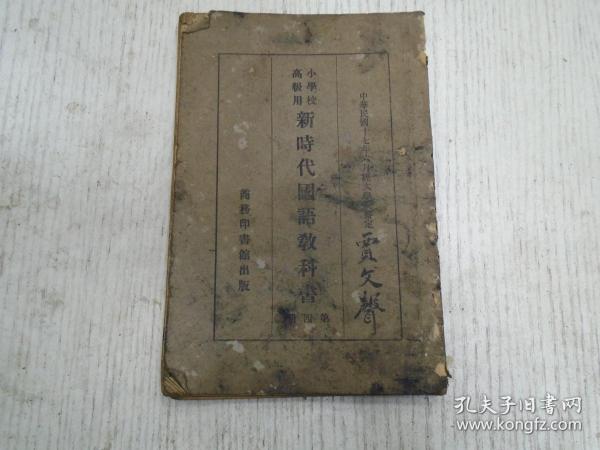 中華民國十七年六月經大學院審定
賈文聲
小學校
高級用
新時代國語教科書
第四冊
商務印書館出版
孔夫子旧书网
www.kongfz.com